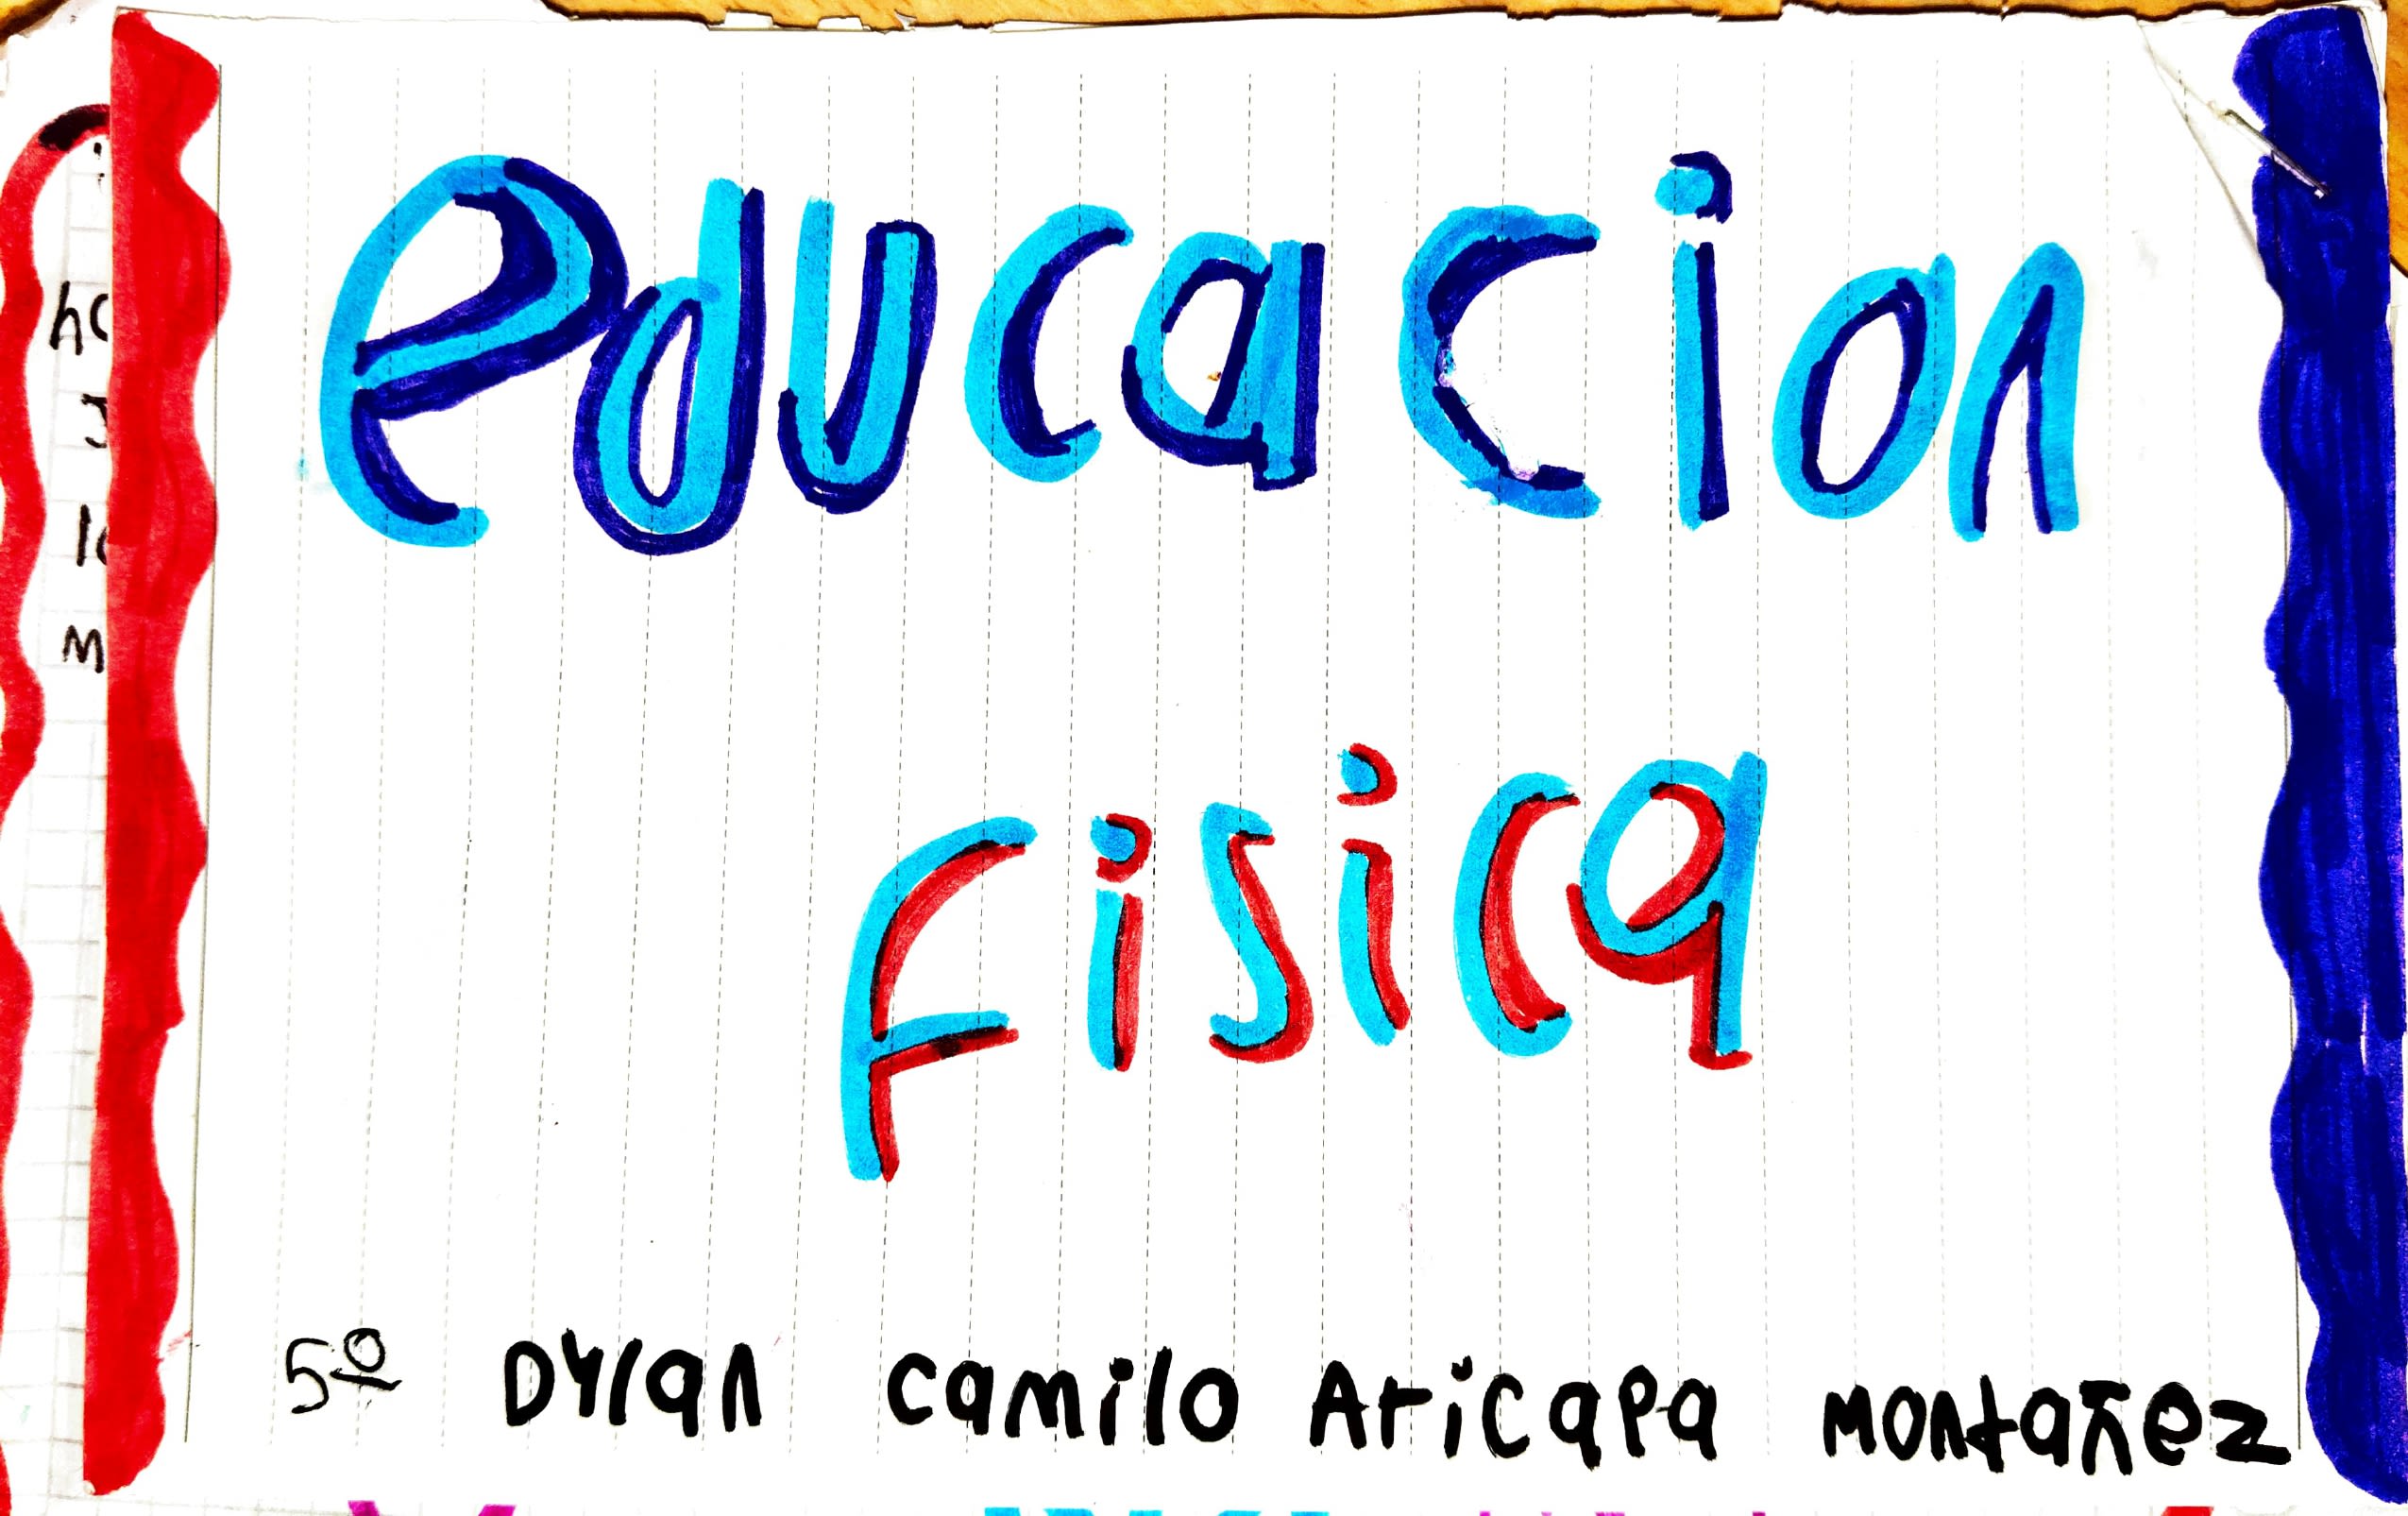 educacion
fisica
5º Dylan camilo Aricapa Montañez